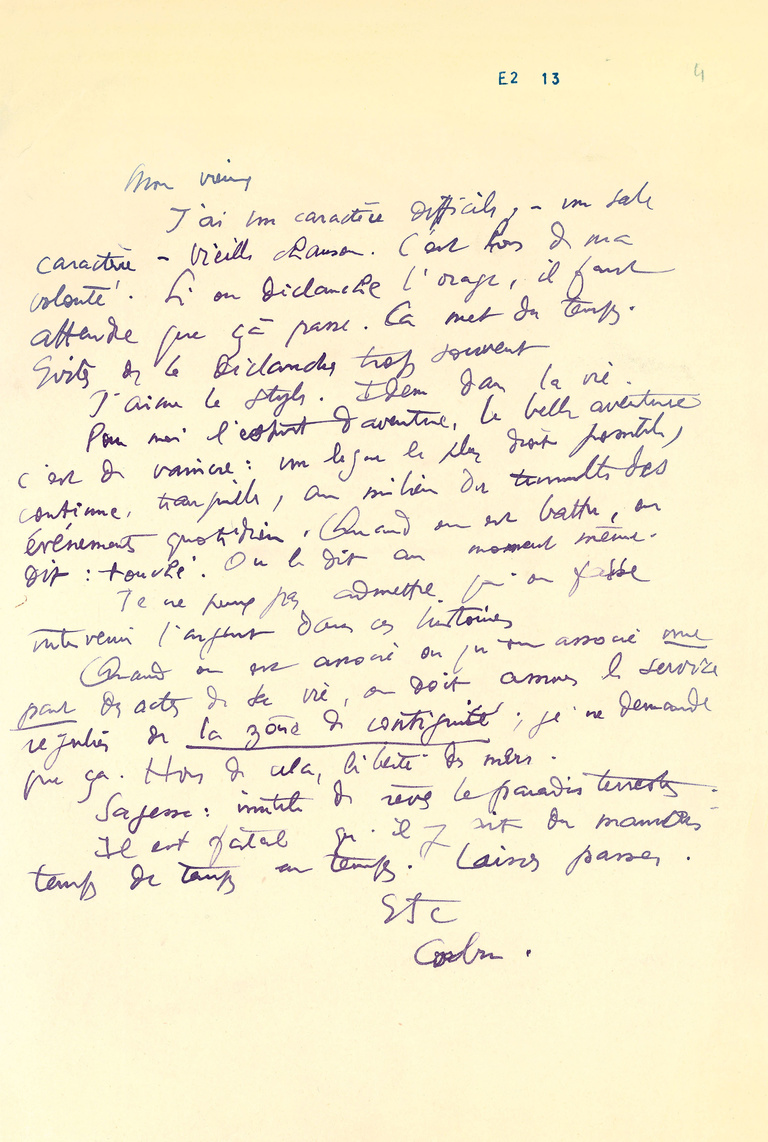 E2 13
4
Mon vieux
J'ai un caractère difficile, – un sale
caractère – vieille chanson. C'est hors de ma
volonté. Si on déclanche l'orage, il faut
attendre que çà passe. Ca met du temps.
Evite de le déclancher trop souvent
J'aime le style. Idem dans la vie.
Pour moi l'esprit d'aventure, la belle aventure
c'est de vaincre : une ligne la plus droite possible,
continue, tranquille, au milieu du tumulte des
événements quotidiens. Quand on est battu, on
dit : touché. On le dit au moment même.
Je ne peux pas admettre qu'on fasse
intervenir l'argent dans ces histoires
Quand on est associé ou qu'on associe une
part des actes de sa vie, on doit assurer le service
régulier de la zône de contiguité ; je ne demande
que ça. Hors de cela, liberté des mers.
Sagesse : inutile de rêver le paradis terrestre.
Il est fatal qu'il y ait du mauvais
temps de temps en temps. Laisser passer.
Etc